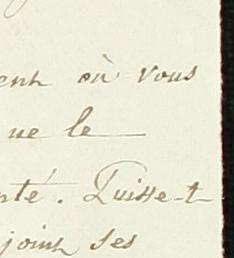 ent où vous
ue le
nté. Puisse-t
joint ses